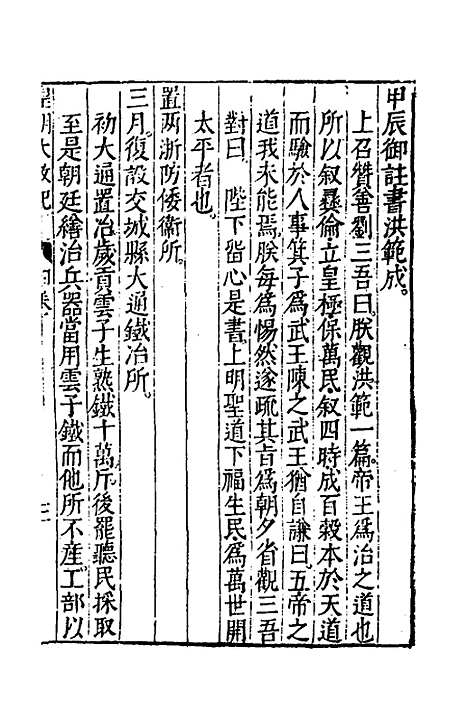 甲辰御註書洪範成。
上召贊善劉三吾曰。朕觀洪範一篇。帝王爲治之道也
所以叙彝倫立皇極。保萬民叙四時成百穀本於天道
而驗於人事箕子爲武王陳之武王猶自謙曰。五帝之
道我未能焉。朕每爲惕然遂疏其旨爲朝夕省觀三吾
對曰　陛下畱心是書。上明聖道下福生民。爲萬世開
太平者也。
置两浙防倭衛所。
三月。復設交城縣大通鐵冶所。
初大通置冶歲貢雲子生熟鐵十萬斤。後罷聽民採取
至是朝廷繕治兵器當用雲子鐵而他所不産。工部以
皇明大政記　四卷　三